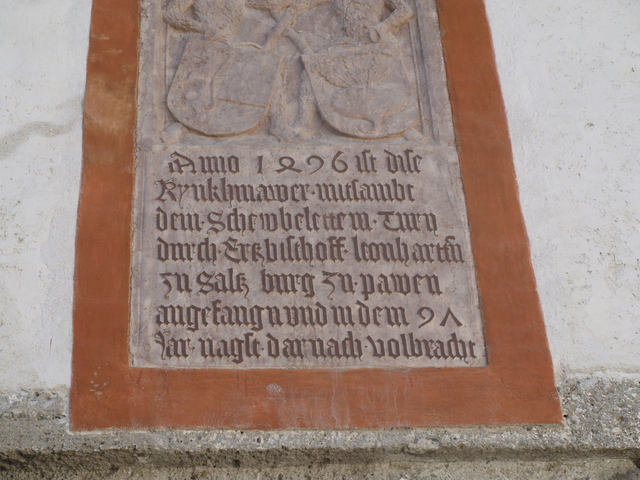 Anno 1496 ist dise
Rynkhmawer · mitsambt
dem · Schewbelettem · Turn
durch · Ertzbischoff · leonharten
zu Saltz burg zu · pawen
angefangn vnd in dem 9Λ
Jar · nagst · darnach · volbracht